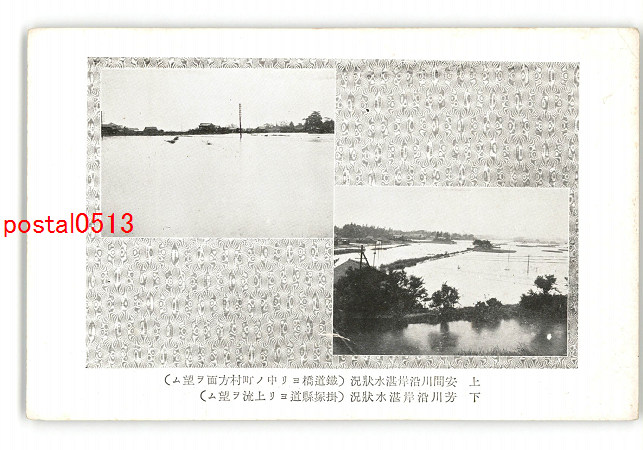 postal0513
上 安間川沿岸湛水狀況（鐵道橋ヨリ中ノ町村方面ヲ望ム）
下 芳川沿岸湛水狀況（掛塚縣道ヨリ上流ヲ望ム）